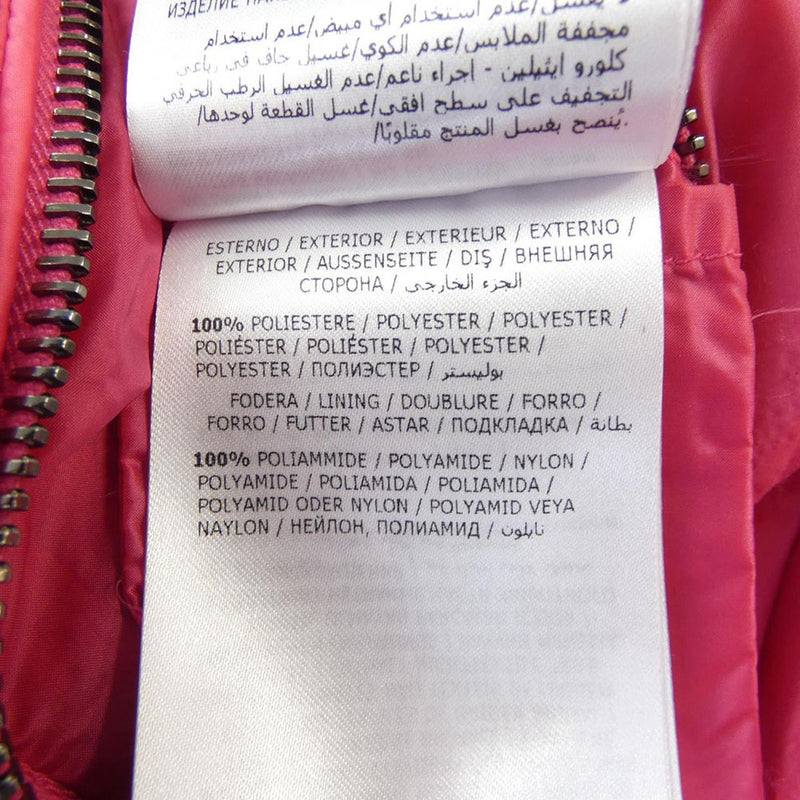 ИЗДЕЛИЕ
يغسل/عدم استخدام أي مبيض/عدم استخدام
مجففة الملابس/عدم الكوي/غسيل جاف في رباعي
كلورو ايثيلين - اجراء ناعم/عدم الغسيل الرطب الحرفي
التجفيف على سطح افقي/غسل القطعة لوحدها/
.يُنصح بغسل المنتج مقلوبًا/
ESTERNO / EXTERIOR / EXTERIEUR / EXTERNO /
EXTERIOR / AUSSENSEITE / DIŞ / ВНЕШНЯЯ
СТОРОНА / الجزء الخارجي
100% POLIESTERE / POLYESTER / POLYESTER /
POLIÉSTER / POLIÉSTER / POLYESTER /
POLYESTER / ПОЛИЭСТЕР / بوليستر
FODERA / LINING / DOUBLURE / FORRO /
FORRO / FUTTER / ASTAR / ПОДКЛАДКА / بطانة
100% POLIAMMIDE / POLYAMIDE / NYLON /
POLYAMIDE / POLIAMIDA / POLIAMIDA /
POLYAMID ODER NYLON / POLYAMID VEYA
NAYLON / НЕЙЛОН, ПОЛИАМИД / نايلون